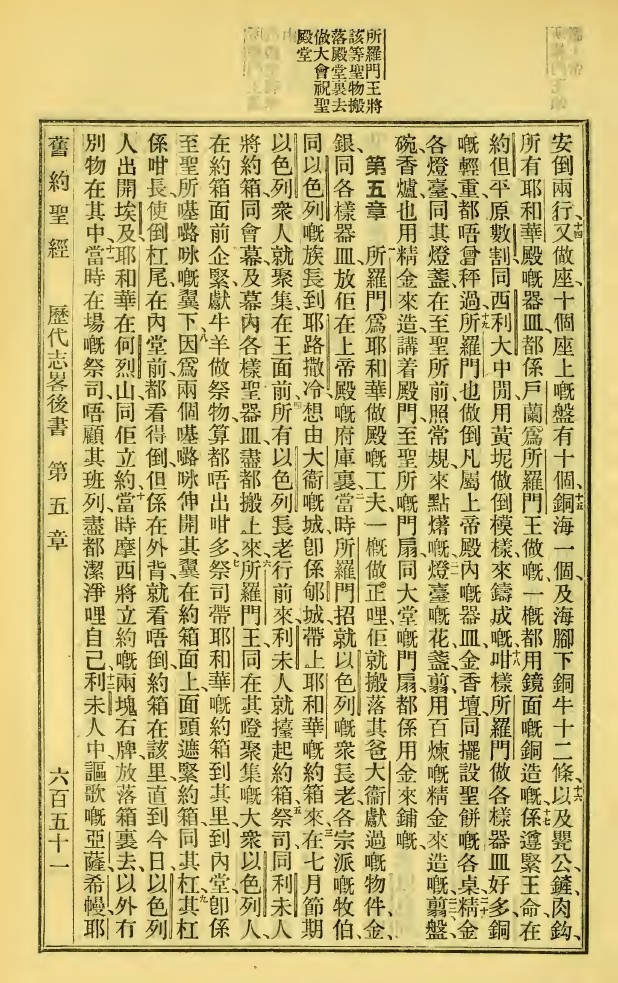 所羅門王將
該等聖物搬
落殿堂裏去
做大會祝聖
殿堂
安倒兩行、十四又做座十個座上嘅盤有十個、十五銅海一個及海腳下銅牛十二條、十六以及甖公鏟肉鈎、
所有耶和華殿嘅器皿、都係戶蘭爲所羅門王做嘅一概都用鏡面嘅銅造嘅、十七係遵緊王命在
約但平原數割同西利大中間用黃坭做倒模樣來鑄成嘅、十八咁樣所羅門做各樣器皿好多銅
嘅輕重、都唔曾秤過、十九所羅門也做倒凡屬上帝殿內嘅器皿、金香壇、同擺設聖餅嘅各桌、二十精金
各燈臺、同其燈盞在至聖所前照常規來點㷫嘅、二一燈臺嘅花盞剪用百煉嘅精金來造嘅、二二剪盤
碗香爐也用精金來造、講着殿門至聖所嘅門扇同大堂嘅門扇都係用金來鋪嘅、
第五章 所羅門爲耶和華做殿嘅工夫一概做正哩佢就搬落其爸大衞獻過嘅物件金、
銀同各樣器皿放佢在上帝殿嘅府庫裏、二當時所羅門招就以色列嘅衆長老各宗派嘅牧伯、
同以色列嘅族長到耶路撒冷、想由大衞嘅城卽係郇城帶上耶和華嘅約箱來、三在七月節期
以色列衆人就聚集在王面前、四所有以色列長老行前來、利未人就擡起約箱、五祭司同利未人
將約箱同會幕、及幕內各樣聖器皿盡都搬上來、六所羅門王同在其嘅聚集嘅大衆以色列人、
在約箱面前企緊、獻牛羊做祭物算都唔出咁多、七祭司帶耶和華嘅約箱到其里、到內堂卽係
至聖所𡀔嚧咏嘅翼下、八因爲兩個𡀔嚧咏伸開其翼在約箱面上、面頭遮緊約箱同其杠、九其杠
係咁長、使倒杠尾在內堂前都看得倒、但係在外背就看唔倒、約箱在該里直到今日、以色列
人出開埃及、耶和華在何烈山同佢立約、十當時摩西將立約嘅兩塊石牌放落箱裏去、以外冇
別物在其中、十一當時在場嘅祭司、唔顧其班列、盡都潔淨哩自己、十二利未人中謳歌嘅亞薩希幔耶
舊約聖經 歷代志畧後書 第五章 六百五十一